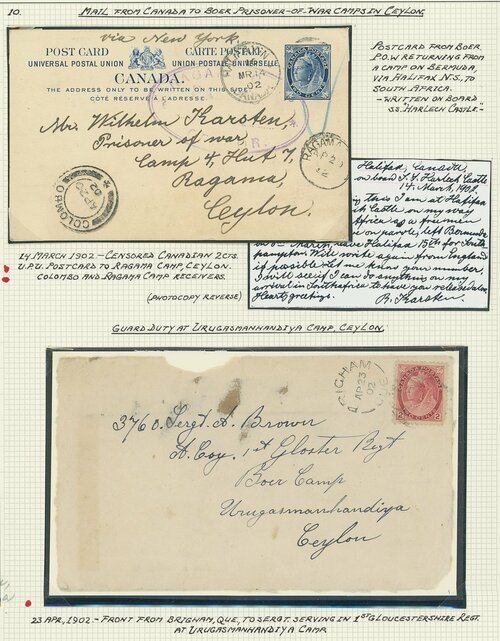 10.
MAIL FROM CANADA TO BOER PRISONER-OF-WAR CAMPS IN CEYLON.
via New York.
POST CARD CARTE POSTALE
UNIVERSAL POSTAL UNION UNION POSTALE UNIVERSELLE
CANADA.
THE ADDRESS ONLY TO BE WRITTEN ON THIS SIDE
CÔTÉ RÉSERVÉ À L'ADRESSE
MR 14
02
CANADA
Mr. Wilhelm Karsten,
Prisoner of war
Camp 4 Hut 7,
Ragama,
Ceylon.
COLOMBO
AP 20
02
RAGAMA
POSTCARD FROM BOER
P.O.W. RETURNING FROM
A CAMP ON BERMUDA
VIA HALIFAX N.S. TO
SOUTH AFRICA.
-WRITTEN ON BOARD
SS. HARLECH CASTLE."-
Halifax, Canada
on board S.Y. Harlech Castle
14. March, 1902.
this I am at Halifax
Castle on my way
Africa as a free man
on parole, left Bermuda
March, leave Halifax 15th for South
hampton. Will write again from England
if possible. Let me know your number,
I will see if I can do anything on my
arrival in South Africa to have you released on
Hearty greetings.
R. Karsten.
14 MARCH 1902-CENSORED CANADIAN 2CTS.
U.P.U. POSTCARD TO RAGAMA CAMP, CEYLON.
COLOMBO AND RAGAMA CAMP RECEIVERS.
(PHOTOCOPY REVERSE)
GUARD DUTY AT URUGASMANHANDIYA CAMP, CEYLON,
BRIGHAM
AP 23
02
QUE
CANADA POSTAGE
2 2
TWO CENTS
3760. Sergt. A. Brown
A. Coy. 1st Gloster Regt
Boer Camp
Urugasmanhandiya
Ceylon
23 APR, 1902.- FRONT FROM BRIGHAM, QUE, TO SERGT. SERVING IN 1ST GLOUCESTERSHIRE REGT.
AT URUGASMANHANDIYA CAMP